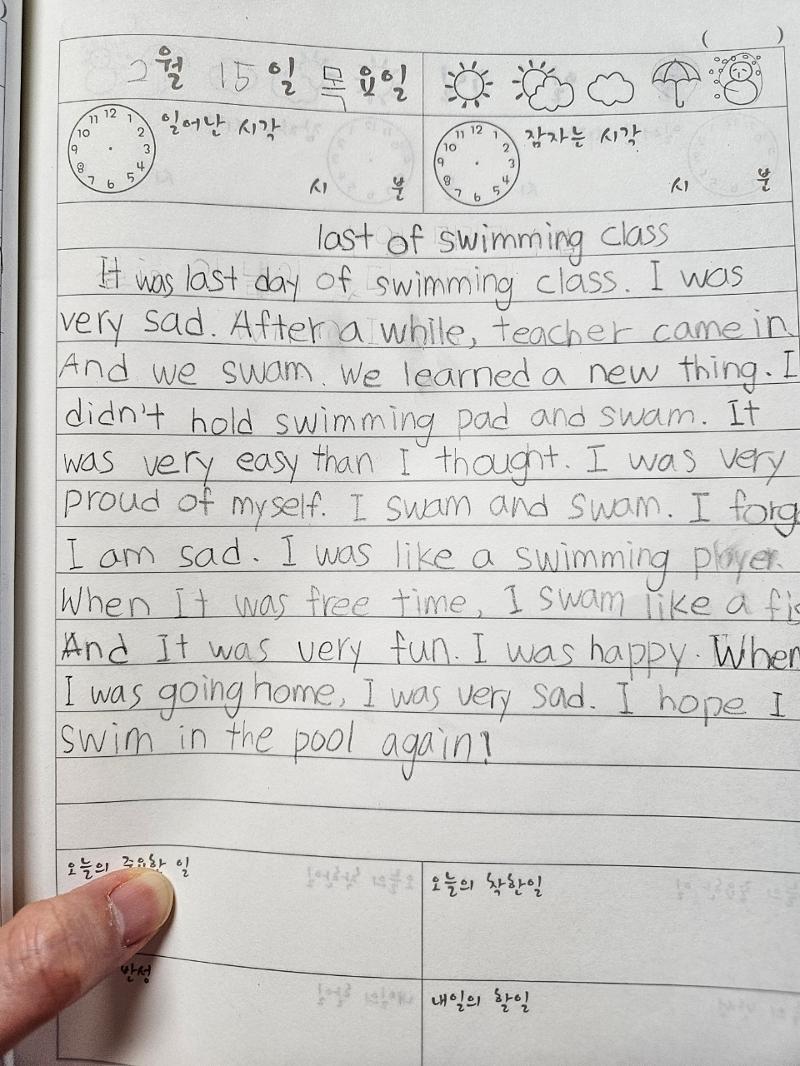 ( )
2월 15일 목요일
11 12 1
10 2
9 3
8 4
7 6 5
일어난 시각
시 분
11 12 1
10 2
9 3
8 4
7 6 5
잠자는 시각
시 분
last of swimming class
It was last day of swimming class. I was
very sad. After a while, teacher came in.
And we swam. We learned a new thing. I
didn't hold swimming pad and swam. It
was very easy than I thought. I was very
proud of myself. I swam and swam. I forg
I am sad. I was like a swimming player.
When It was free time, I swam like a fis
And It was very fun. I was happy. When
I was going home, I was very sad. I hope I
swim in the pool again!
오늘의 중요한 일
오늘의 착한일
반성
내일의 할일